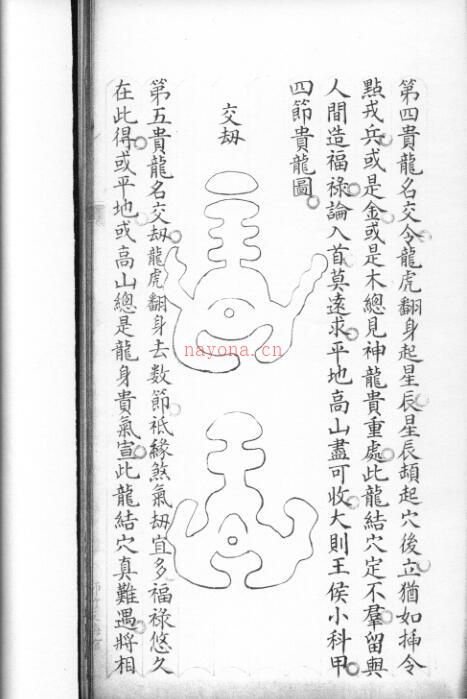 第四貴龍名交令龍虎翻身起星辰星辰頓起穴後立猶如揷令
點戎兵或是金或是木總見神龍貴重處此龍結穴定不羣留與
人間造福祿論入首莫遠求平地高山盡可收大則王侯小科甲
四節貴龍圖
交刼
第五貴龍名交刼龍虎翻身去数節祇緣煞氣刼宜多福祿悠久
在此得或平地或高山總是龍身貴氣宣此龍結穴真難遇將相
nayona.cn